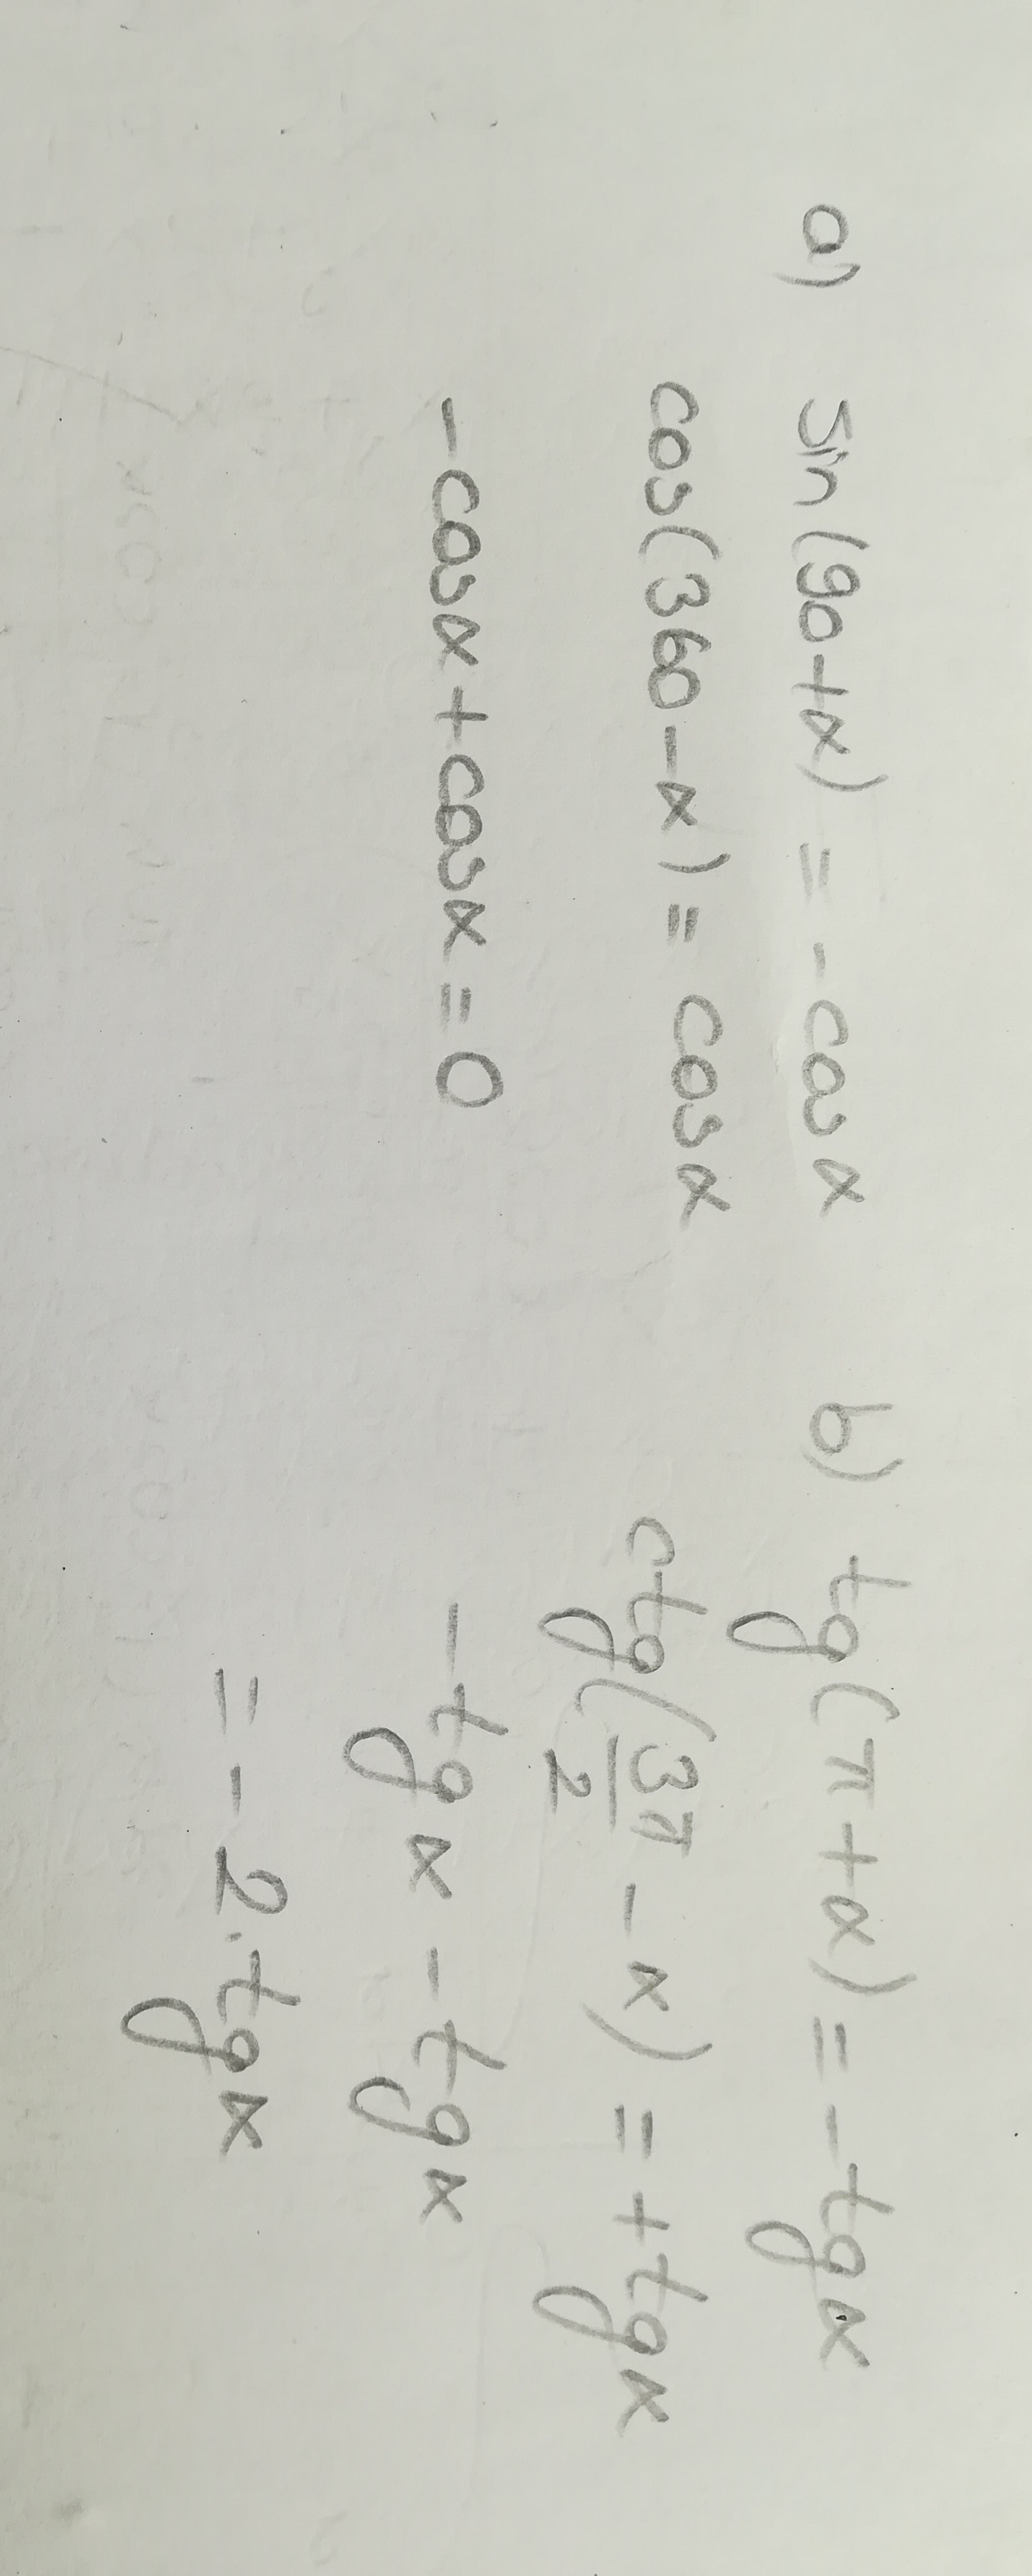 a) sin(90+α) = -cosα
cos(360-α) = cosα
-cosα+cosα=0
b) tg(π+α) = -tgα
ctg(3π/2 - α) = +tgα
-tgα - tgα
= -2·tgα